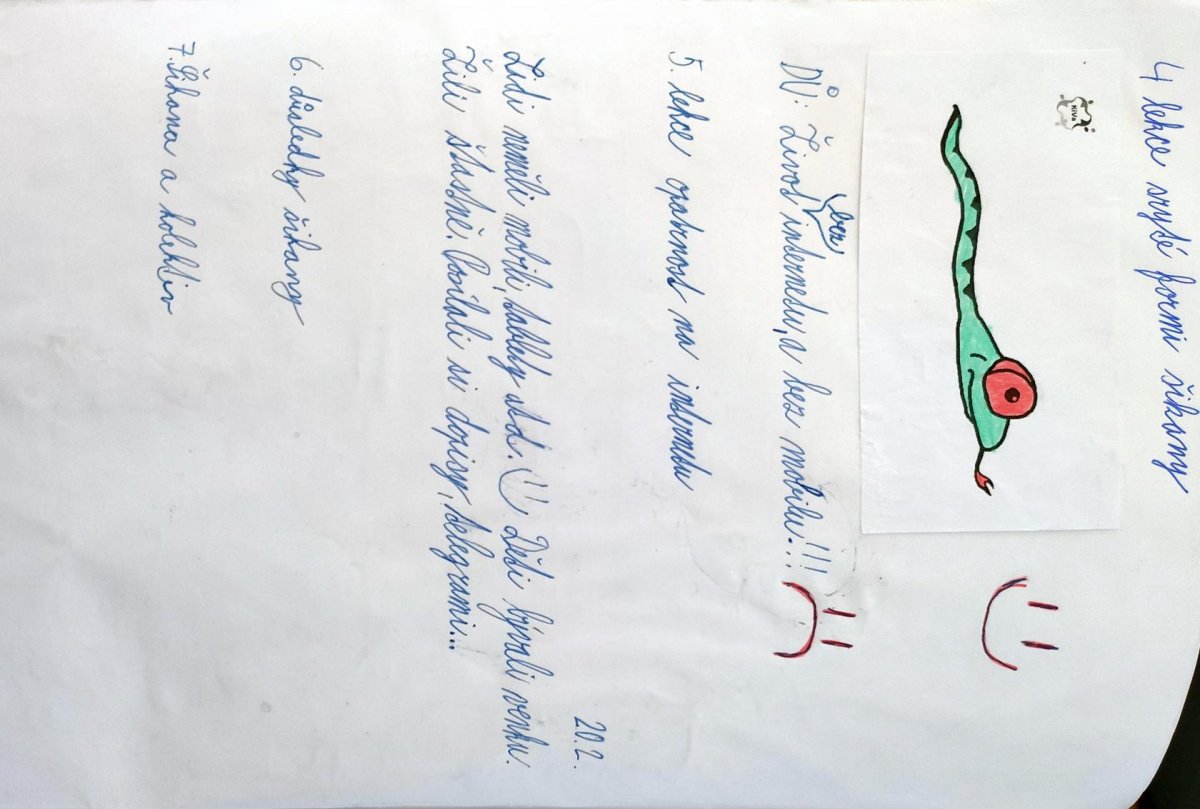 4 lekce skryté formi šikany
KiVa
DÚ: Život bez internetu, a bez mobilu.!!!
5. lekce opatrnost na internetu
20.2.
Lidi neměli mobil, tablety atd. Děti bývali venku.
Žili šťastně. Posílali si dopisy, telegrami...
6. důsledky šikany
7. Šikana a kolektiv